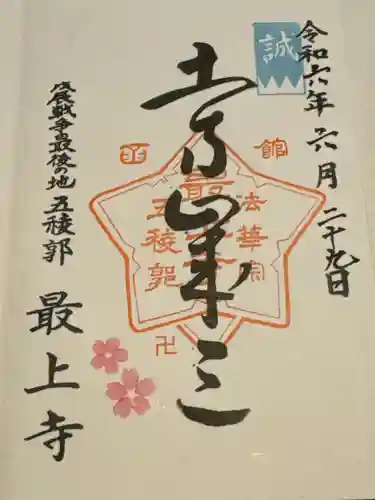 誠
令和六年六月二十九日
土方歳三
函館
法華宗
最上寺
五稜郭
卍
戊辰戦争最後の地 五稜郭
最上寺